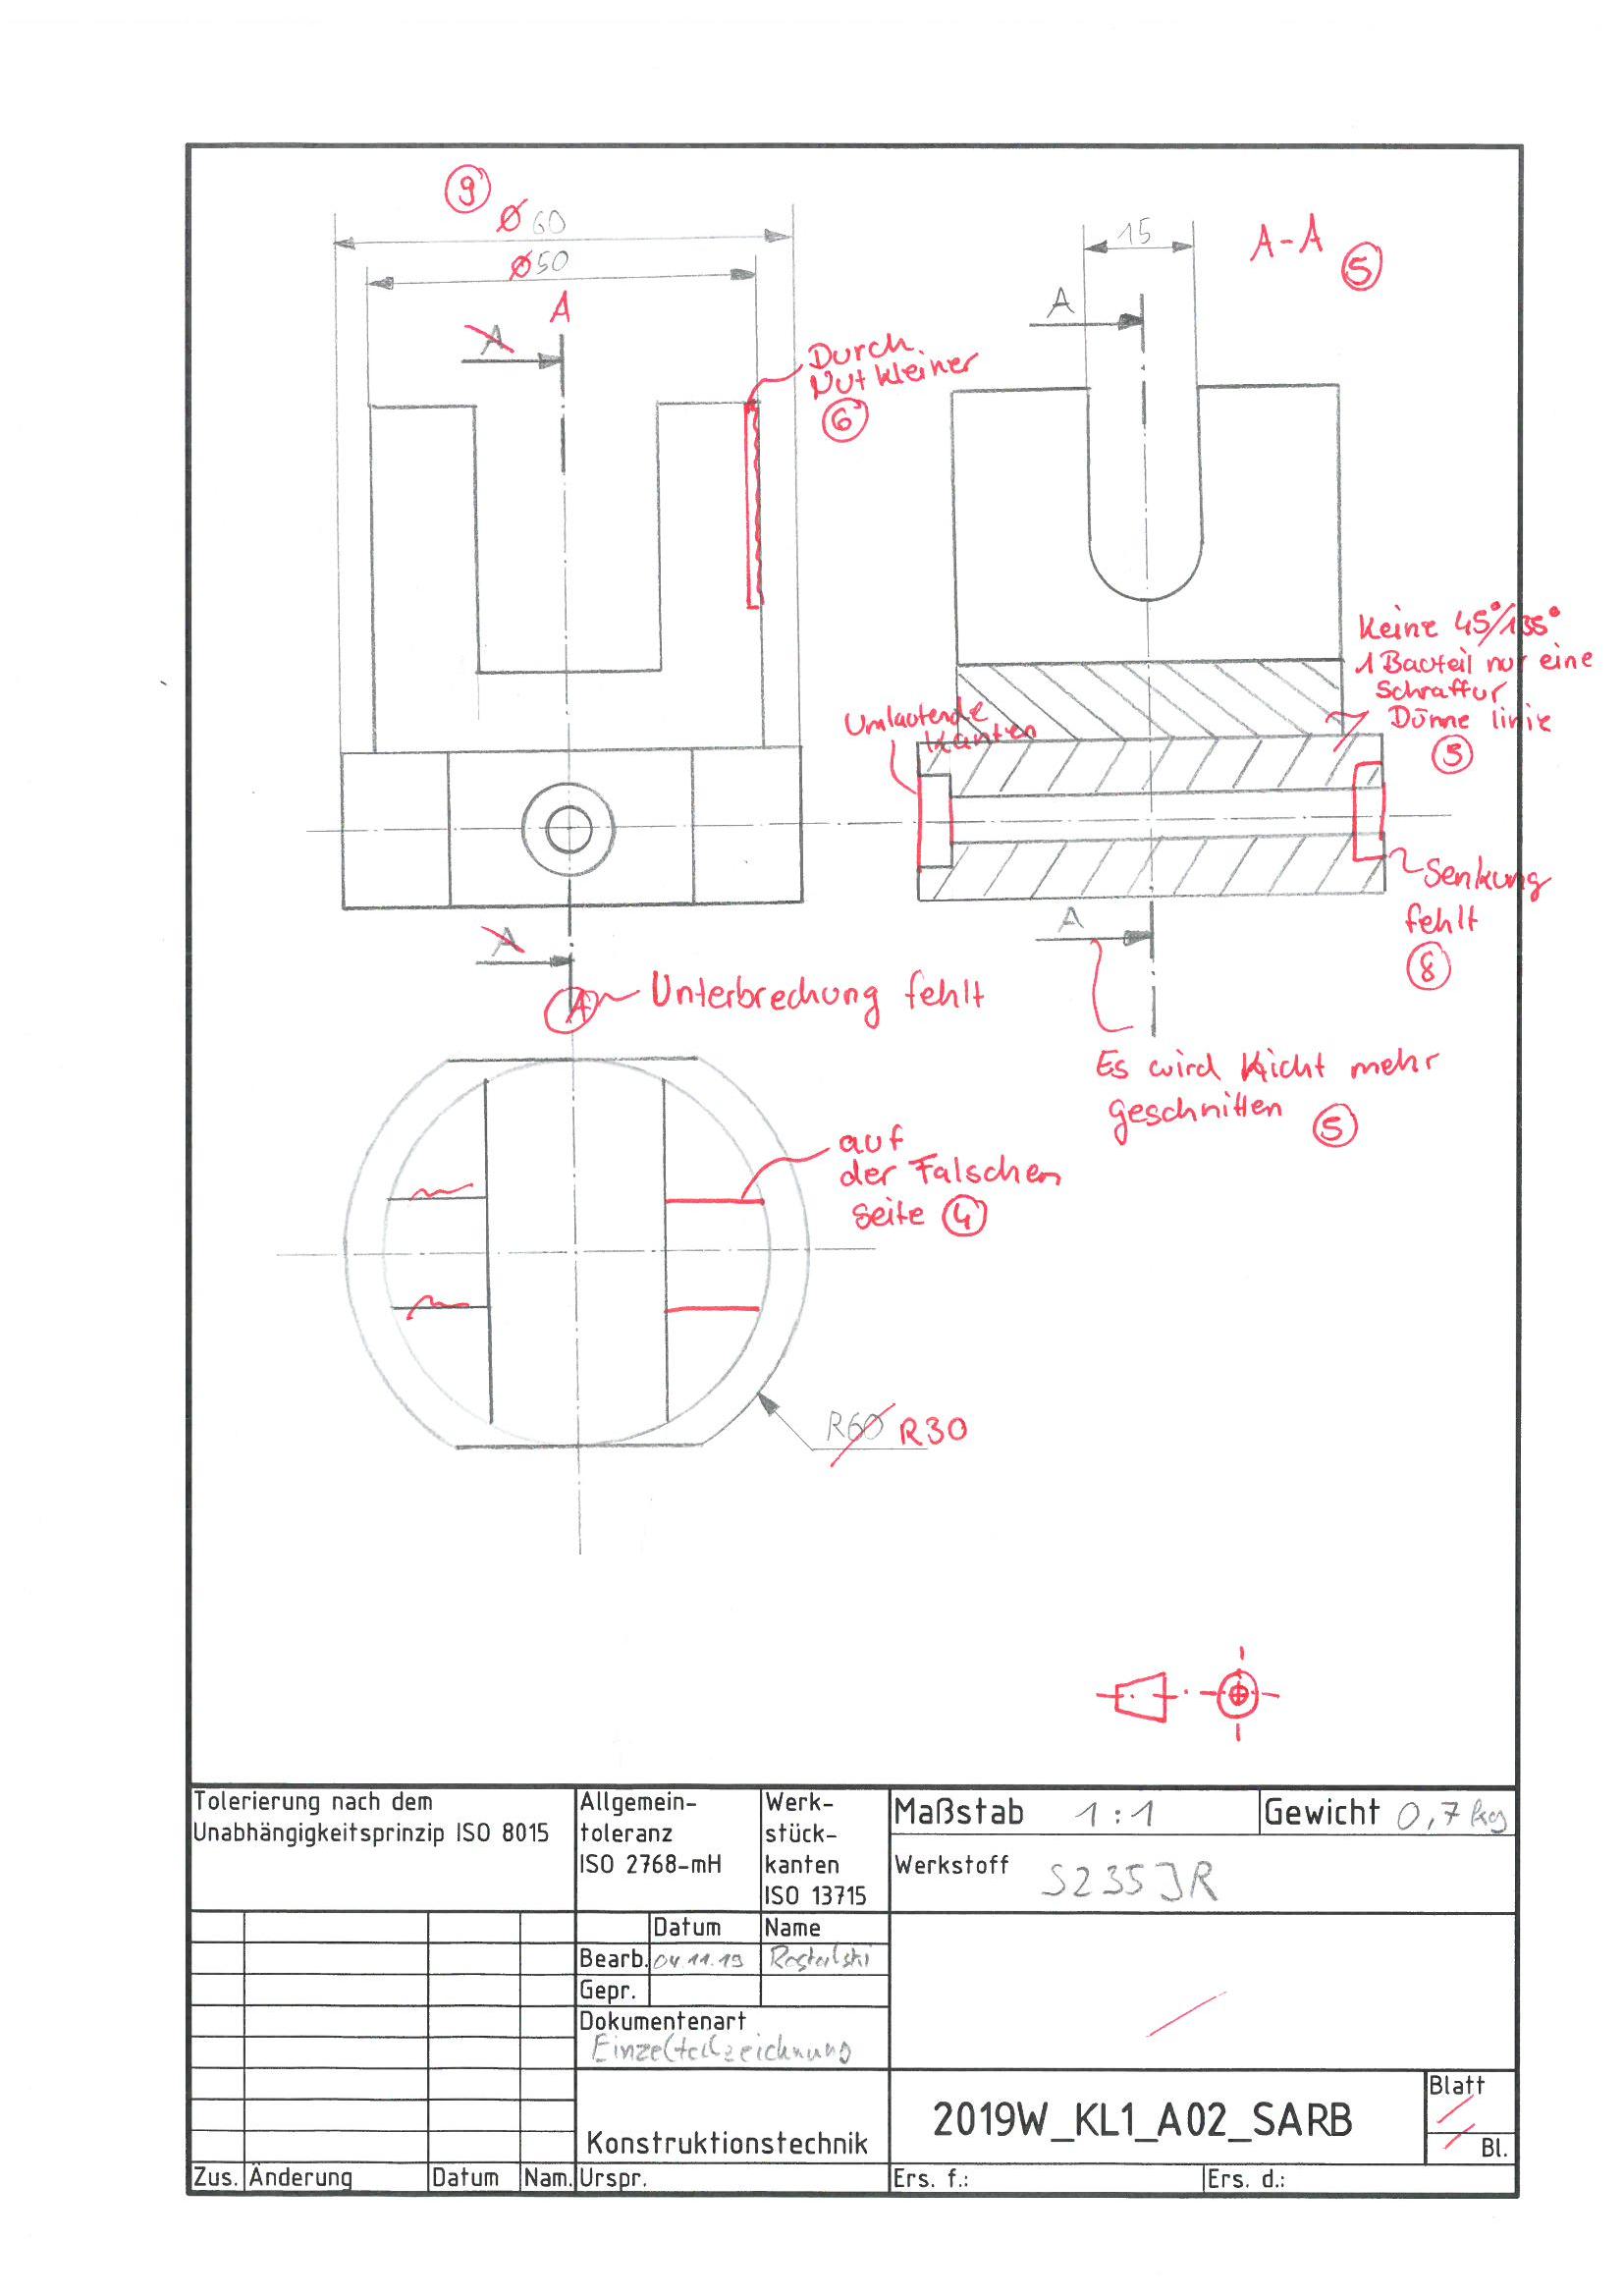 9
Ø 60
Ø50
A
A
Durch
Nut kleiner
6
15
A-A
5
A
Keine 45°/135°
1 Bauteil nur eine
Schraffur
Dünne linie
5
Umlaufende
Kanten
Senkung
fehlt
8
A
A
A
Unterbrechung fehlt
Es wird Nicht mehr
geschnitten 5
auf
der Falschen
Seite 4
R60 R30
Tolerierung nach dem
Unabhängigkeitsprinzip ISO 8015
Allgemein-
toleranz
ISO 2768-mH
Werk-
stück-
kanten
ISO 13715
Maßstab 1:1
Gewicht 0,7 kg
Werkstoff S235JR
Datum Name
Bearb. 04.11.19 Rostalski
Gepr.
Dokumentenart
Einzelteilzeichnung
Konstruktionstechnik
2019W_KL1_A02_SARB
Blatt
Bl.
Zus. Änderung Datum Nam. Urspr. Ers. f.: Ers. d.: